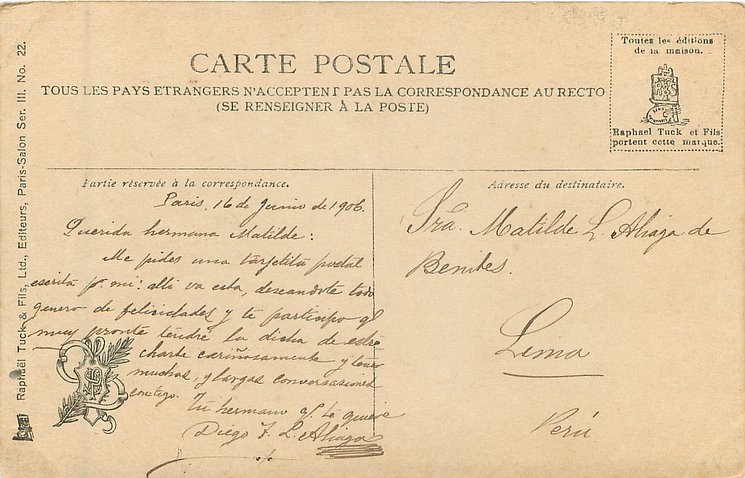 CARTE POSTALE
TOUS LES PAYS ETRANGERS N'ACCEPTENT PAS LA CORRESPONDANCE AU RECTO
(SE RENSEIGNER À LA POSTE)
Toutes les éditions
de la maison.
Raphael Tuck et Fils
portent cette marque.
Raphael Tuck & Fils, Ltd., Editeurs, Paris-Salon Ser. III. No. 22.
Partie réservée à la correspondance.
Paris, 16 de Junio de 1906.
Querida hermana Matilde:
Me pides una tarjetita postal
escrita p. mi: alli va esta, deseandote todo
genero de felicidades y te participo qe
muy pronto tendré la dicha de estre
charte cariñosamente y tener
muchas, y largas conversaciones
contigo.
Tu hermano qe te quiere
Diego F. L. Aliaga
Adresse du destinataire.
Sra. Matilde L. Aliaga de
Benites.
Lima
Perú